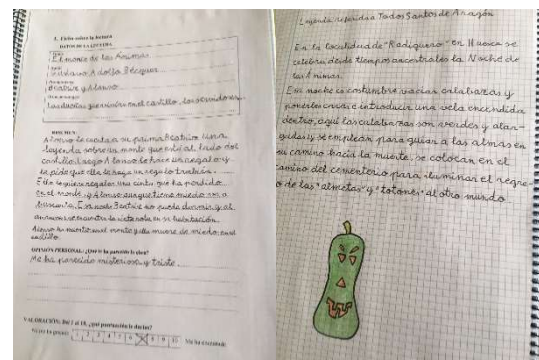 1. Ficha sobre la lectura
DATOS DE LA LECTURA
El monte de las Ánimas
Gustavo Adolfo Bécquer
Beatriz y Alonso
Las dueñas que viven en el castillo, los servidores
RESUMEN:
Alonso le cuenta a su prima Beatriz una
leyenda sobre un monte que está al lado del
castillo. Luego Alonso le hace un regalo y
le pide que ella le haga un regalo también.
Ella le quiere regalar una cinta que ha perdido
en el monte y Alonso aunque tiene miedo va a
buscarla. Esa noche Beatriz no puede dormir y al
amanecer encuentra la cinta rota en su habitación.
Alonso ha muerto en el monte y ella muere de miedo en el
castillo.
OPINIÓN PERSONAL: ¿Qué te ha parecido la obra?
Me ha parecido misteriosa y triste.
VALORACIÓN: Del 1 al 10, ¿qué puntuación le darías?
No me ha gustado 1 2 3 4 5 6 8 9 10 Me ha encantado
Leyenda referida a Todos Santos de Aragón
En la localidad de "Radiquero" en Huesca se
celebra desde tiempos ancestrales la Noche de
las Ánimas.
Esa noche es costumbre vaciar calabazas y
ponerles caras e introducir una vela encendida
dentro, aquí las calabazas son verdes y alar-
gadas y se emplean para guiar a las almas en
su camino hacia la muerte, se colocan en el
camino del cementerio para iluminar el regre-
o de las "almetas" y "totones" al otro mundo